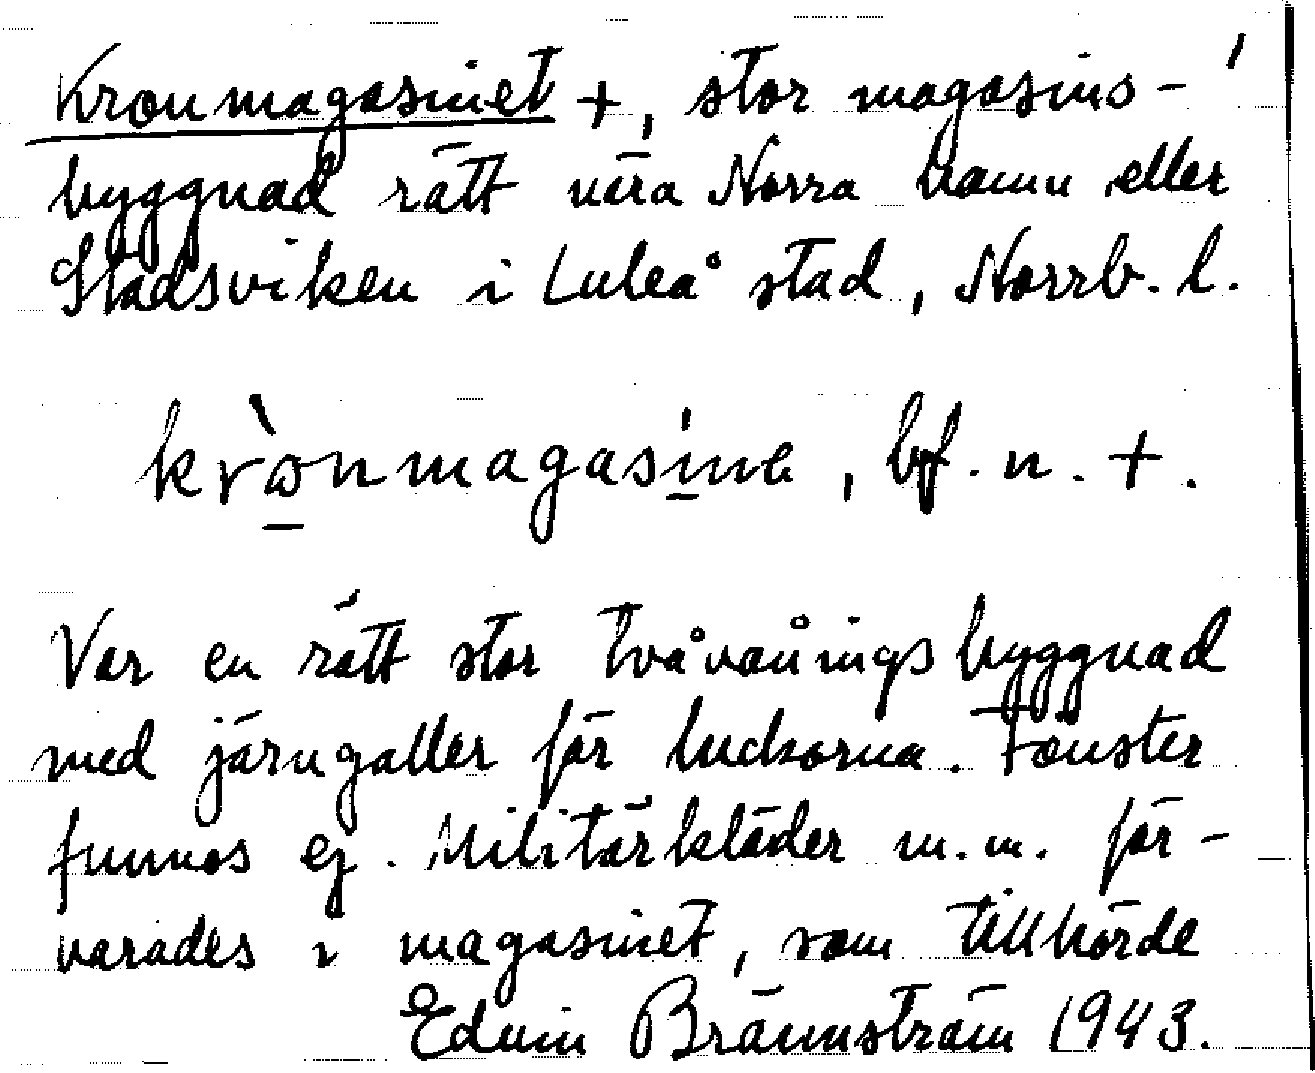 Kronmagasinet +, stor magasins-
byggnad rätt nära Norra hamn eller
Stadsviken i Luleå stad, Norrb. l.
krònmagasíne, bf. n. +.
Var en rätt stor tvåvåningsbyggnad
med järngaller för luckorna. Fönster
funnos ej. Militärkläder m.m. för-
varades i magasinet, som tillhörde
Edvin Brännström 1943.